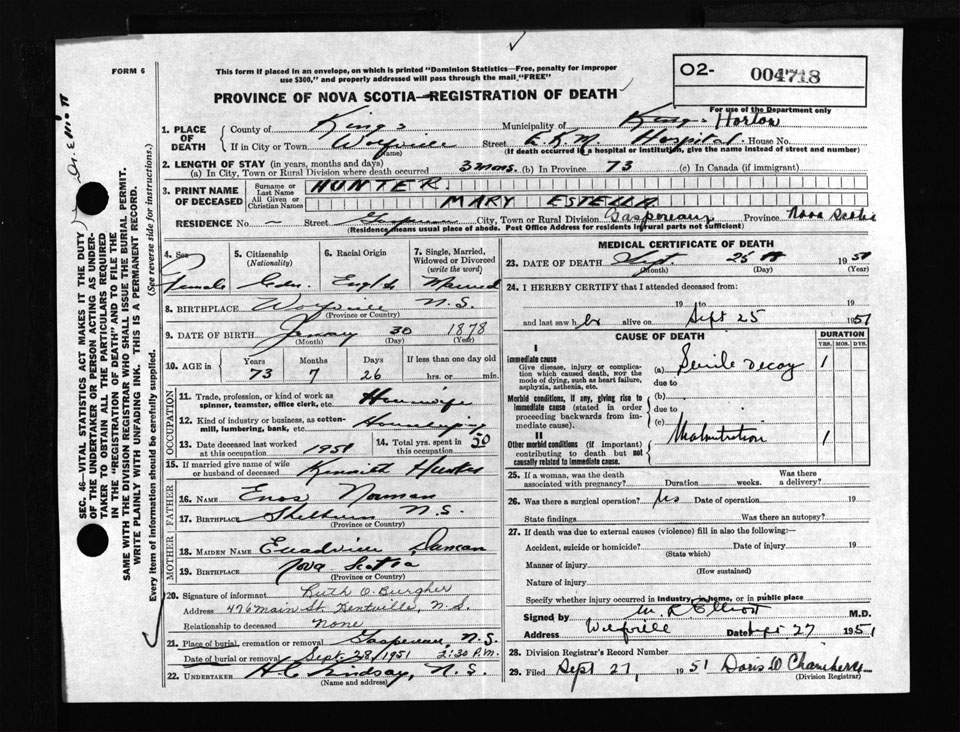 FORM 6
This form if placed in an envelope, on which is printed "Dominion Statistics—Free, penalty for improper
use $300," and properly addressed will pass through the mail "FREE"
PROVINCE OF NOVA SCOTIA—REGISTRATION OF DEATH
O2- 004718
For use of the Department only
1. PLACE OF DEATH
County of Kings Municipality of Kings Horton
If in City or Town Wolfville (Name) Street E.K.M. Hospital House No.
(If death occurred in a hospital or institution, give the name instead of street and number)
2. LENGTH OF STAY (in years, months and days)
(a) In City, Town or Rural Division where death occurred 3 mons. (b) In Province 73 (c) In Canada (if immigrant)
3. PRINT NAME OF DECEASED
Surname or Last Name HUNTER
All Given or Christian Names MARY ESTELLA
RESIDENCE No. — Street Gaspereau City, Town or Rural Division Gaspereaux Province Nova Scotia
(Residence means usual place of abode. Post Office Address for residents in rural parts not sufficient)
4. Sex Female
5. Citizenship (Nationality) Cdn.
6. Racial Origin English
7. Single, Married, Widowed or Divorced (write the word) Married
8. BIRTHPLACE Wolfville N.S.
(Province or Country)
9. DATE OF BIRTH January 30 1878
(Month) (Day) (Year)
10. AGE in Years Months Days If less than one day old
73 7 26 hrs. or min.
OCCUPATION
11. Trade, profession, or kind of work as
spinner, teamster, office clerk, etc. Housewife
12. Kind of industry or business, as cotton-
mill, lumbering, bank, etc. Housekeeping
13. Date deceased last worked
at this occupation 1951
14. Total yrs. spent in
this occupation 50
15. If married give name of wife
or husband of deceased Kenneth Hunter
FATHER
16. NAME Enos Norman
17. BIRTHPLACE Shelburn N.S.
(Province or Country)
MOTHER
18. MAIDEN NAME Duncan
19. BIRTHPLACE Nova Scotia
(Province or Country)
20. Signature of informant Ruth O. Burgher
Address 476 Main St. Kentville, N.S.
Relationship to deceased None
21. Place of burial, cremation or removal Gaspereau, N.S.
Date of burial or removal Sept. 28/1951 2:30 P.M.
22. UNDERTAKER H.C. Lindsay, N.S.
(Name and address)
MEDICAL CERTIFICATE OF DEATH
23. DATE OF DEATH Sept. 25 1951
(Month) (Day) (Year)
24. I HEREBY CERTIFY that I attended deceased from:
19 to 19
and last saw her alive on Sept 25 1951
CAUSE OF DEATH
DURATION
YRS. MOS. DYS.
I
Immediate cause
Give disease, injury or complica-
tion which caused death, NOT the
mode of dying, such as heart failure,
asphyxia, asthenia, etc.
(a) Senile decay 1
due to
Morbid conditions, if any, giving rise to
immediate cause (stated in order
proceeding backwards from im-
mediate cause).
(b)
due to
(c)
II
Other morbid conditions (if important)
contributing to death but not
causally related to immediate cause.
Malnutrition 1
25. If a woman, was the death
associated with pregnancy? Duration weeks. Was there
a delivery?
26. Was there a surgical operation? No Date of operation 19
State findings Was there an autopsy?
27. If death was due to external causes (violence) fill in also the following:—
Accident, suicide or homicide? Date of injury 19
(State which)
Manner of injury
(How sustained)
Nature of injury
Specify whether injury occurred in industry, in home, or in public place
Signed by M. R. Elliott M.D.
Address Wolfville Date Sept 27 1951
28. Division Registrar's Record Number
29. Filed Sept 27, 1951 Doris W Chambers
(Division Registrar)
SEC. 46—VITAL STATISTICS ACT MAKES IT THE DUTY
OF THE UNDERTAKER OR PERSON ACTING AS UNDER-
TAKER TO OBTAIN ALL THE PARTICULARS REQUIRED
IN THE "REGISTRATION OF DEATH" AND TO FILE THE
SAME WITH THE DIVISION REGISTRAR WHO SHALL ISSUE THE BURIAL PERMIT.
WRITE PLAINLY WITH UNFADING INK. THIS IS A PERMANENT RECORD.
Every item of information should be carefully supplied. (See reverse side for instructions.)